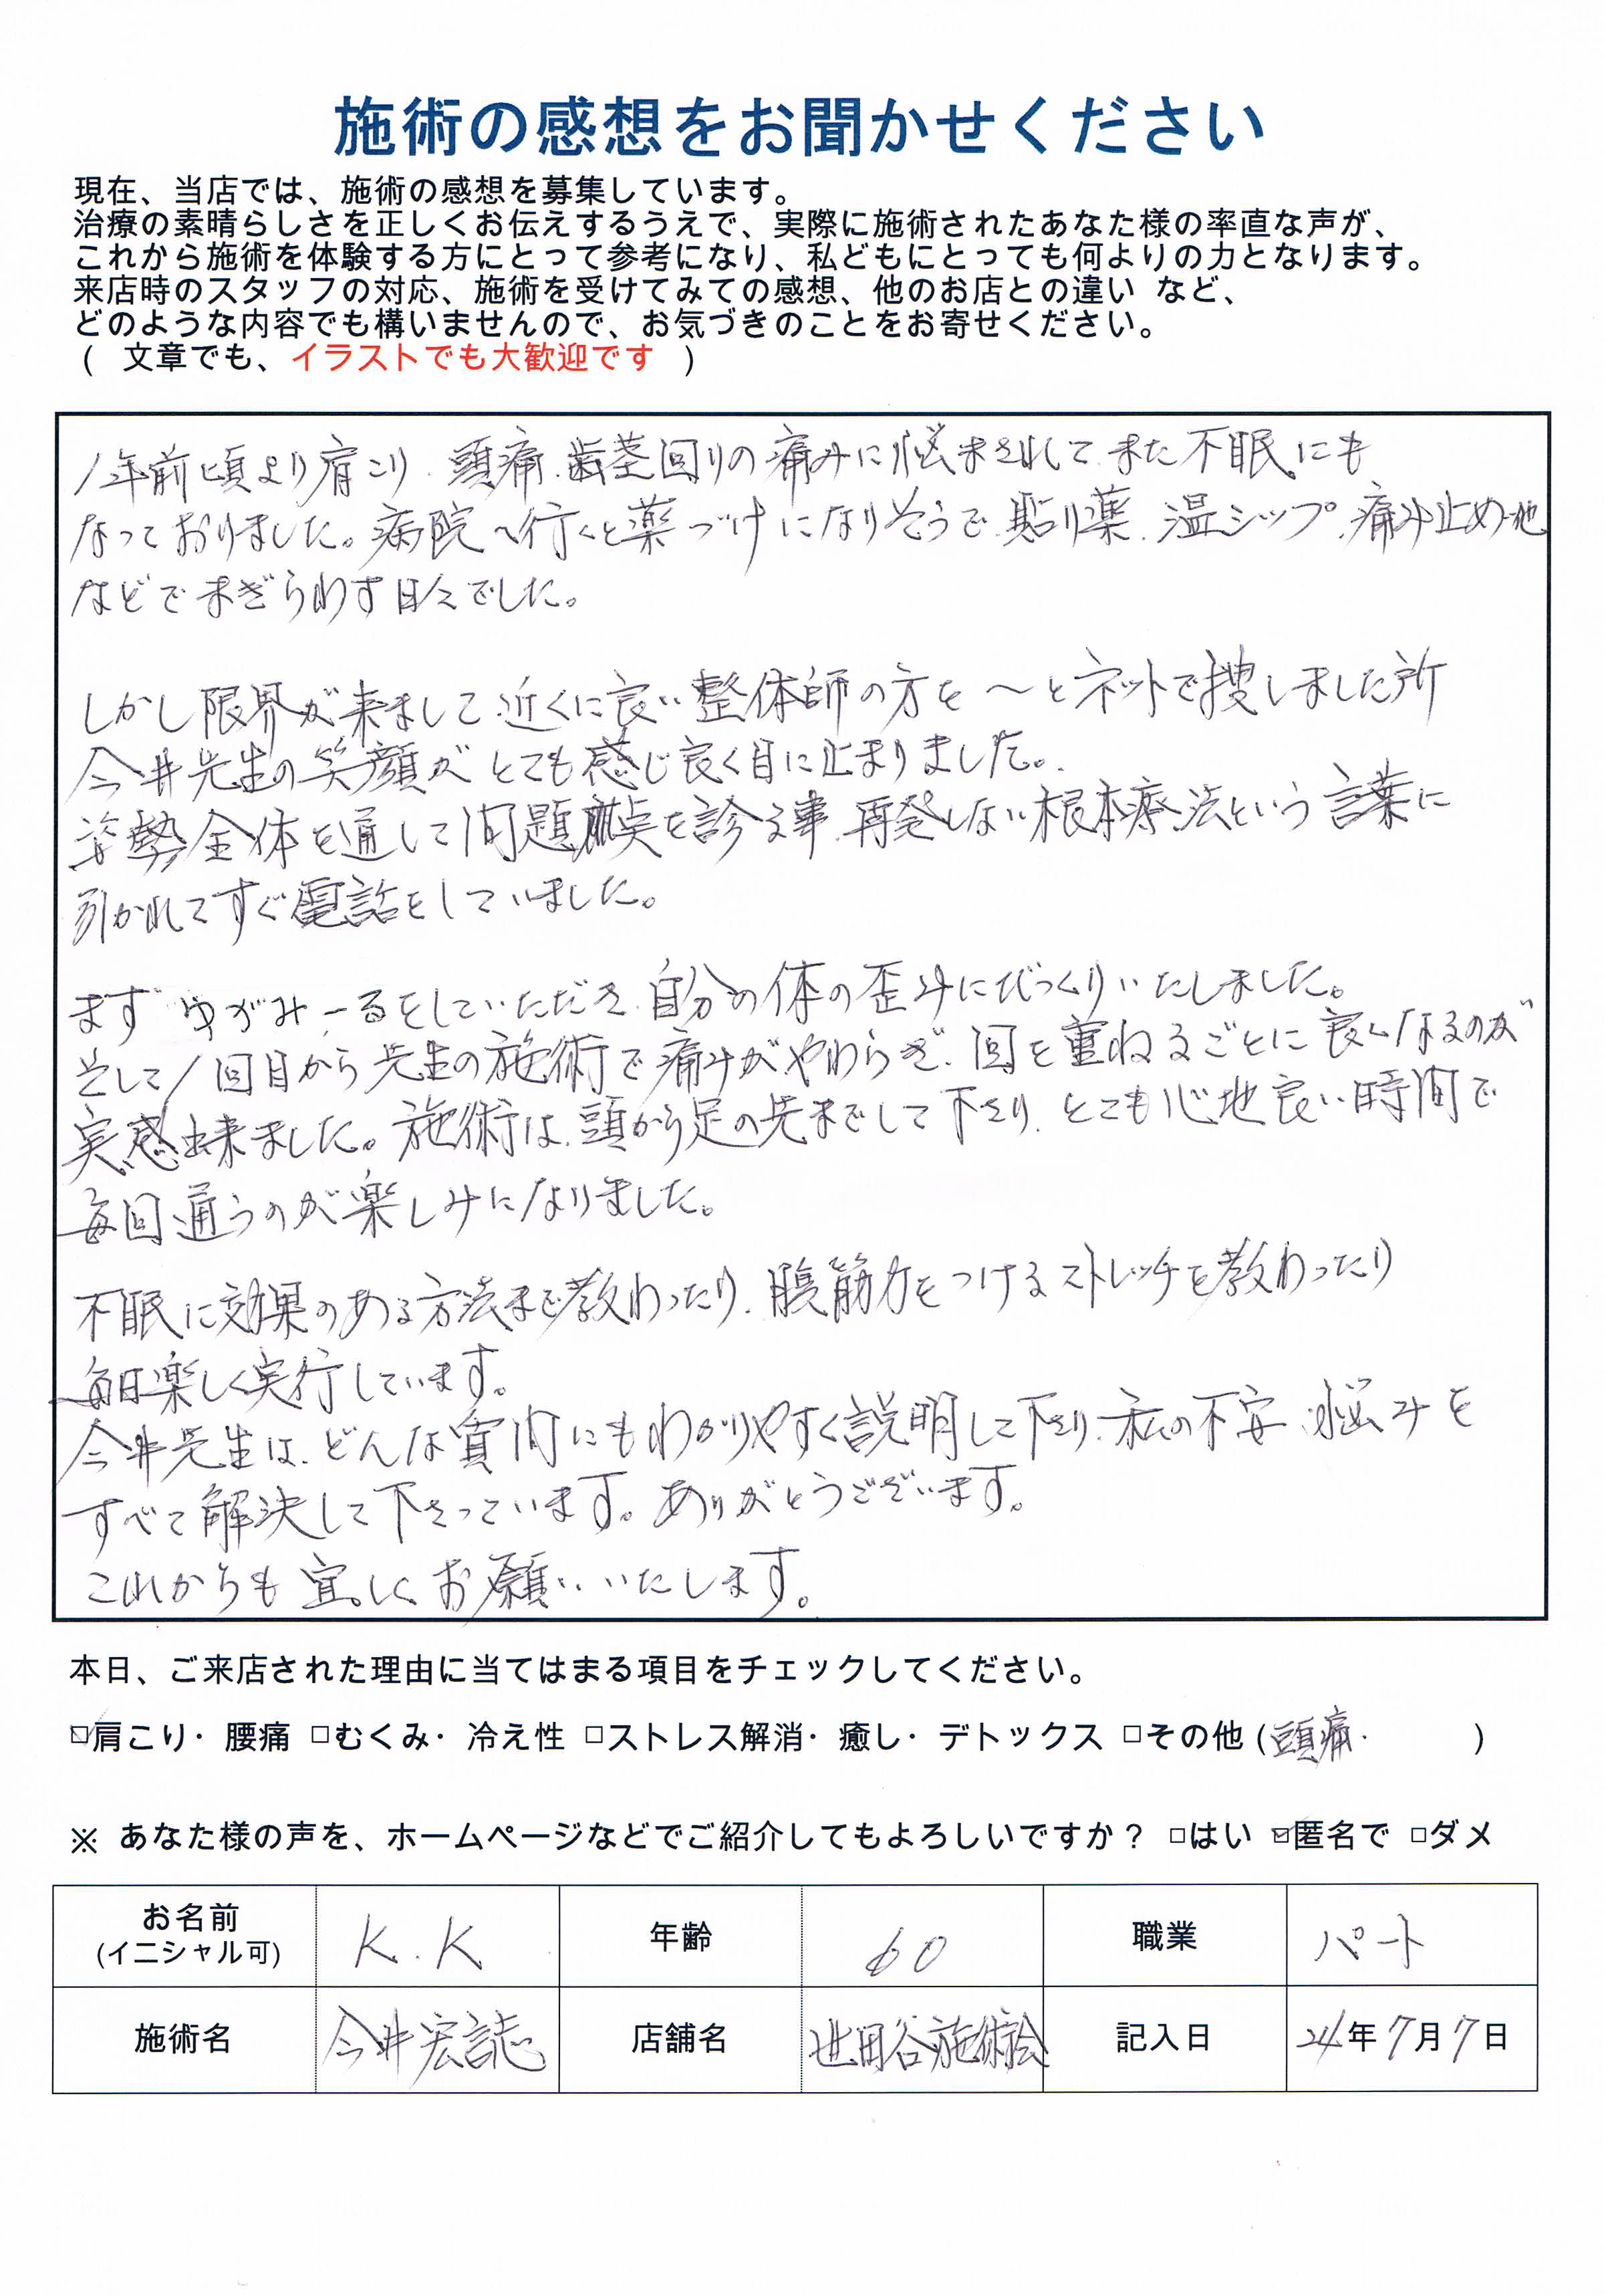 施術の感想をお聞かせください
現在、当店では、施術の感想を募集しています。
治療の素晴らしさを正しくお伝えするうえで、実際に施術されたあなた様の率直な声が、
これから施術を体験する方にとって参考になり、私どもにとっても何よりの力となります。
来店時のスタッフの対応、施術を受けてみての感想、他のお店との違い など、
どのような内容でも構いませんので、お気づきのことをお寄せください。
( 文章でも、イラストでも大歓迎です )
1年前頃より肩こり、頭痛、歯茎回りの痛みに悩まされて、また不眠にも
なっておりました。病院へ行くと薬づけになりそうで、貼り薬、温シップ、痛み止め他
などでまぎらわす日々でした。
しかし限界が来まして、近くに良い整体師の方を〜とネットで捜しました所
今井先生の笑顔がとても感じ良く目に止まりました。
姿勢全体を通して問題点を診る事、再発しない根本療法という言葉に
引かれてすぐ電話をしていました。
まず ゆがみーるをしていただき、自分の体の歪みにびっくりいたしました。
そして1回目から先生の施術で痛みがやわらぎ、回を重ねるごとに良くなるのが
実感出来ました。施術は、頭から足の先までして下さり、とても心地良い時間で
毎回通うのが楽しみになりました。
不眠に効果のある方法まで教わったり、腹筋力をつけるストレッチを教わったり
毎日楽しく実行しています。
今井先生は、どんな質問にもわかりやすく説明して下さり、私の不安、悩みを
すべて解決して下さっています。ありがとうございます。
これからも宜しくお願いいたします。
本日、ご来店された理由に当てはまる項目をチェックしてください。
☑肩こり・腰痛 □むくみ・冷え性 □ストレス解消・癒し・デトックス □その他 (頭痛・ )
※ あなた様の声を、ホームページなどでご紹介してもよろしいですか? □はい ☑匿名で □ダメ
お名前 (イニシャル可) K.K 年齢 60 職業 パート
施術名 今井宏誌 店舗名 世田谷施術会 記入日 24年7月7日